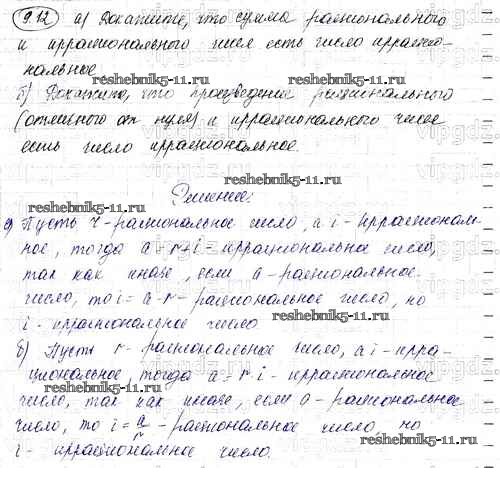 9.12 а) Докажите, что сумма рационального
и иррационального чисел есть число иррацио-
нальное.
reshebnik5-11.ru
reshebnik5-11.ru
б) Докажите, что произведение рационального
(отличного от нуля) и иррационального чисел
есть число иррациональное.
reshebnik5-11.ru
Решение:
reshebnik5-11.ru
а) Пусть r - рациональное число, а i - иррациональ-
ное, тогда a = r+i - иррациональное число,
так как иначе, если a - рациональное
число, то i = a - r - рациональное число, но
i - иррациональное число.
reshebnik5-11.ru
б) Пусть r - рациональное число, а i - ирра-
циональное тогда a = r·i - иррациональное
число, так как иначе, если a - рациональное
число, то i = a/r - рациональное число, но
reshebnik5-11.ru
i - иррациональное число.
reshebnik5-11.ru